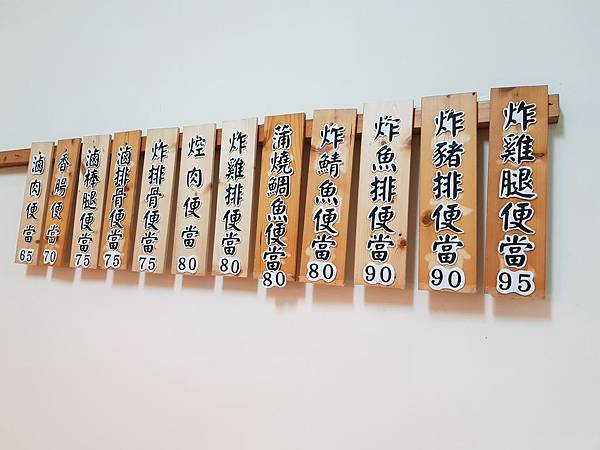 滷肉便當 65
香腸便當 70
滷棒腿便當 75
滷排骨便當 75
炸排骨便當 75
焢肉便當 80
炸雞排便當 80
蒲燒鯛魚便當 80
炸鯖魚便當 80
炸魚排便當 90
炸豬排便當 90
炸雞腿便當 95